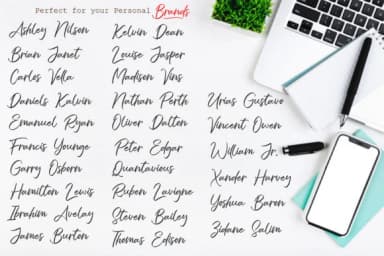 Perfect for your Personal Brands
Ashley Nilson
Brian Janet
Carles Vella
Daniels Kalvin
Emanuel Ryan
Francis Younge
Garry Osborn
Hamilton Lewis
Ibrahim Avelay
James Burton
Kelvin Dean
Louise Jasper
Madison Vins
Nathan Perth
Oliver Dalton
Peter Edgar
Quantavious
Ruben Lavigne
Steven Bailey
Thomas Edison
Urias Gustavo
Vincent Owen
William Jr.
Xander Harvey
Yoshua Baron
Zidane Salim